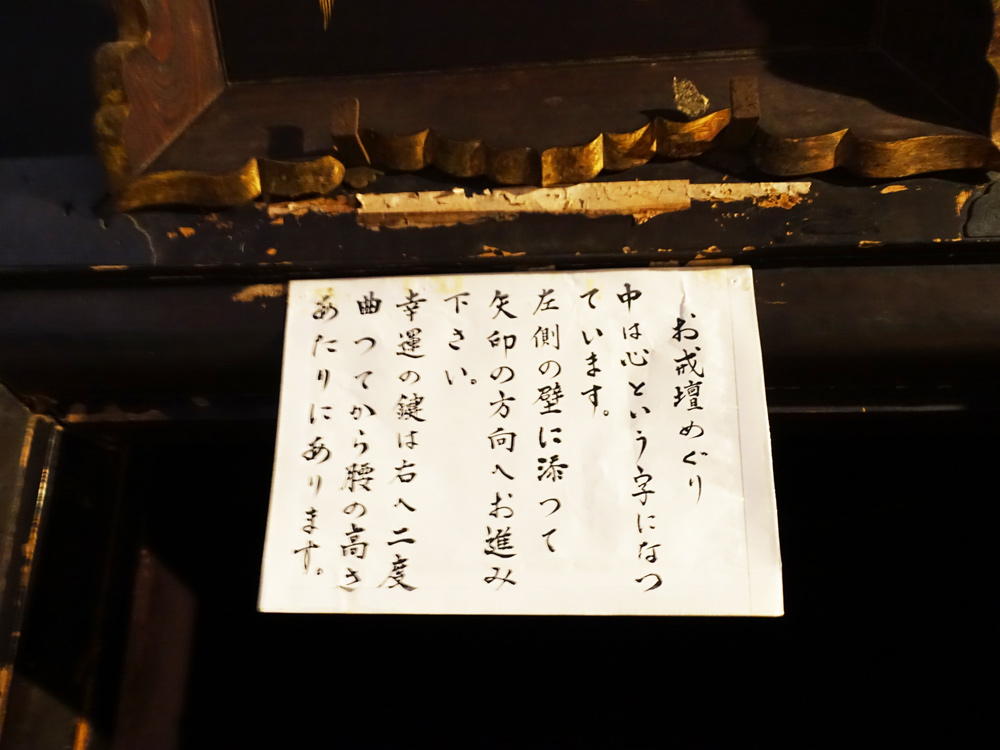 お戒壇めぐり
中は心という字になつ
ています。
左側の壁に添つて
矢印の方向へお進み
下さい。
幸運の鍵は右へ二度
曲つてから腰の高さ
あたりにあります。